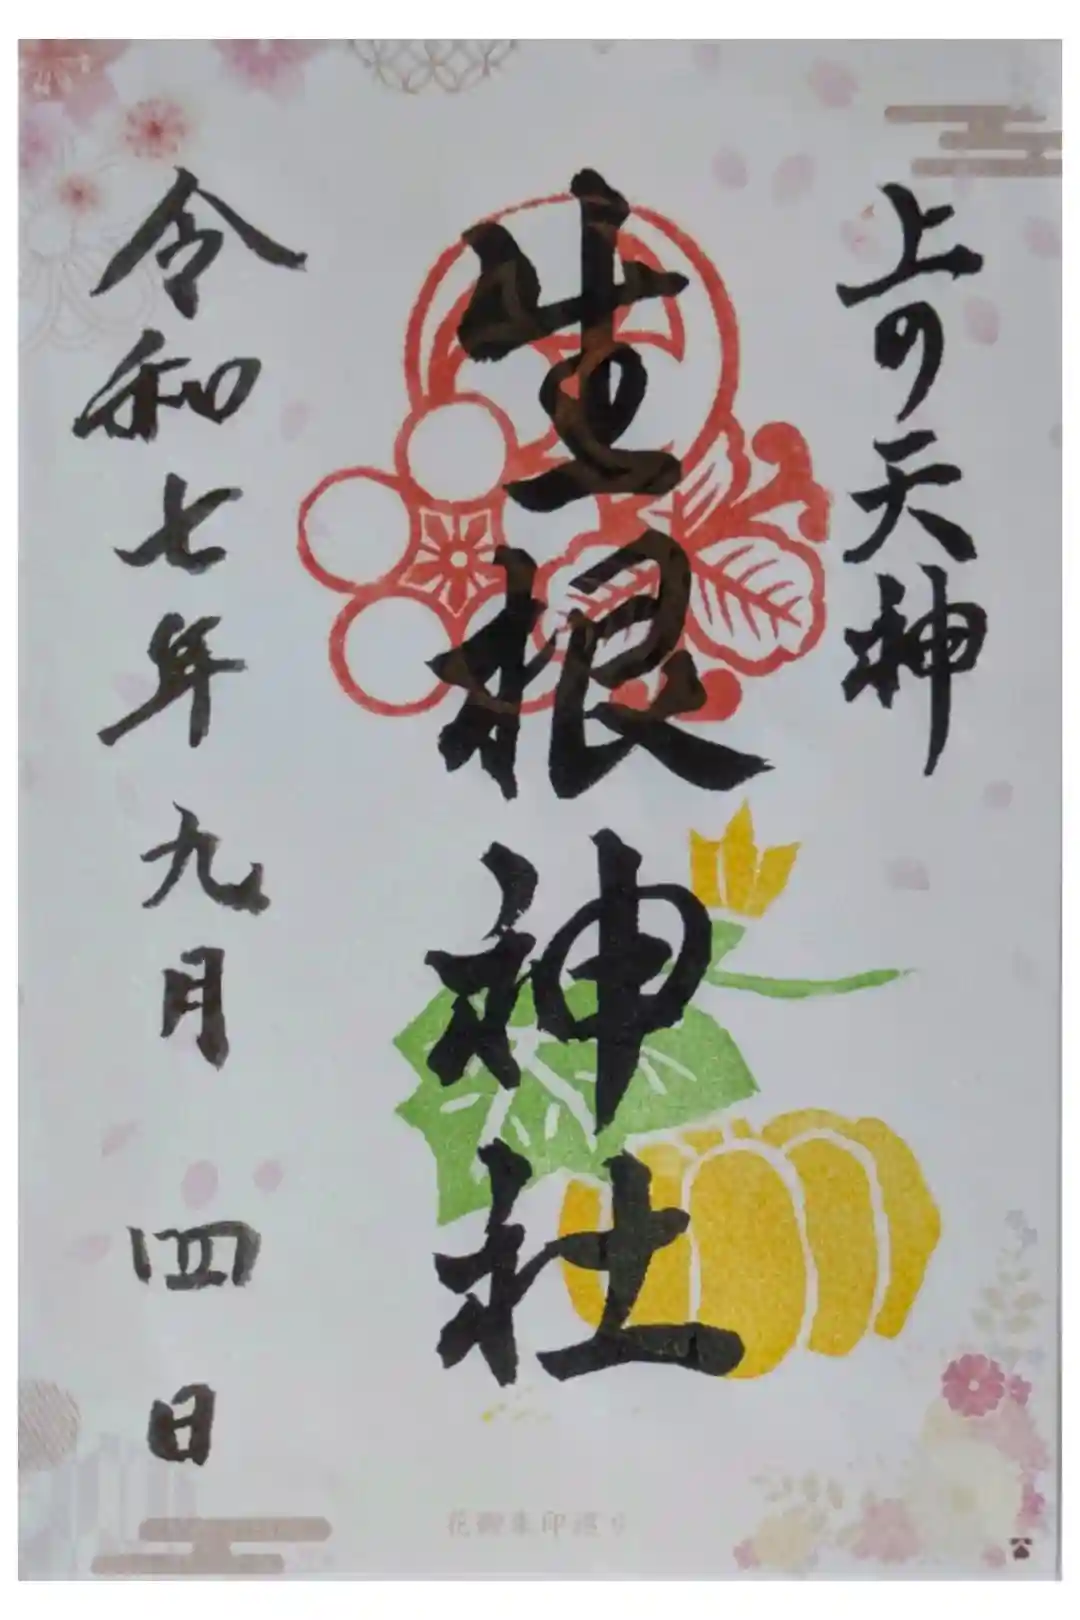 上の天神
生根神社
令和七年九月四日
花御朱印巡り